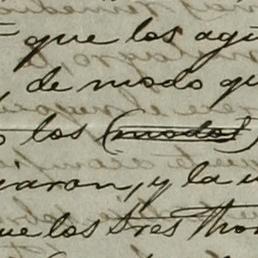 que los agu
, de modo qu
los (modos)
jaron, y la u
ue los Sres Thom